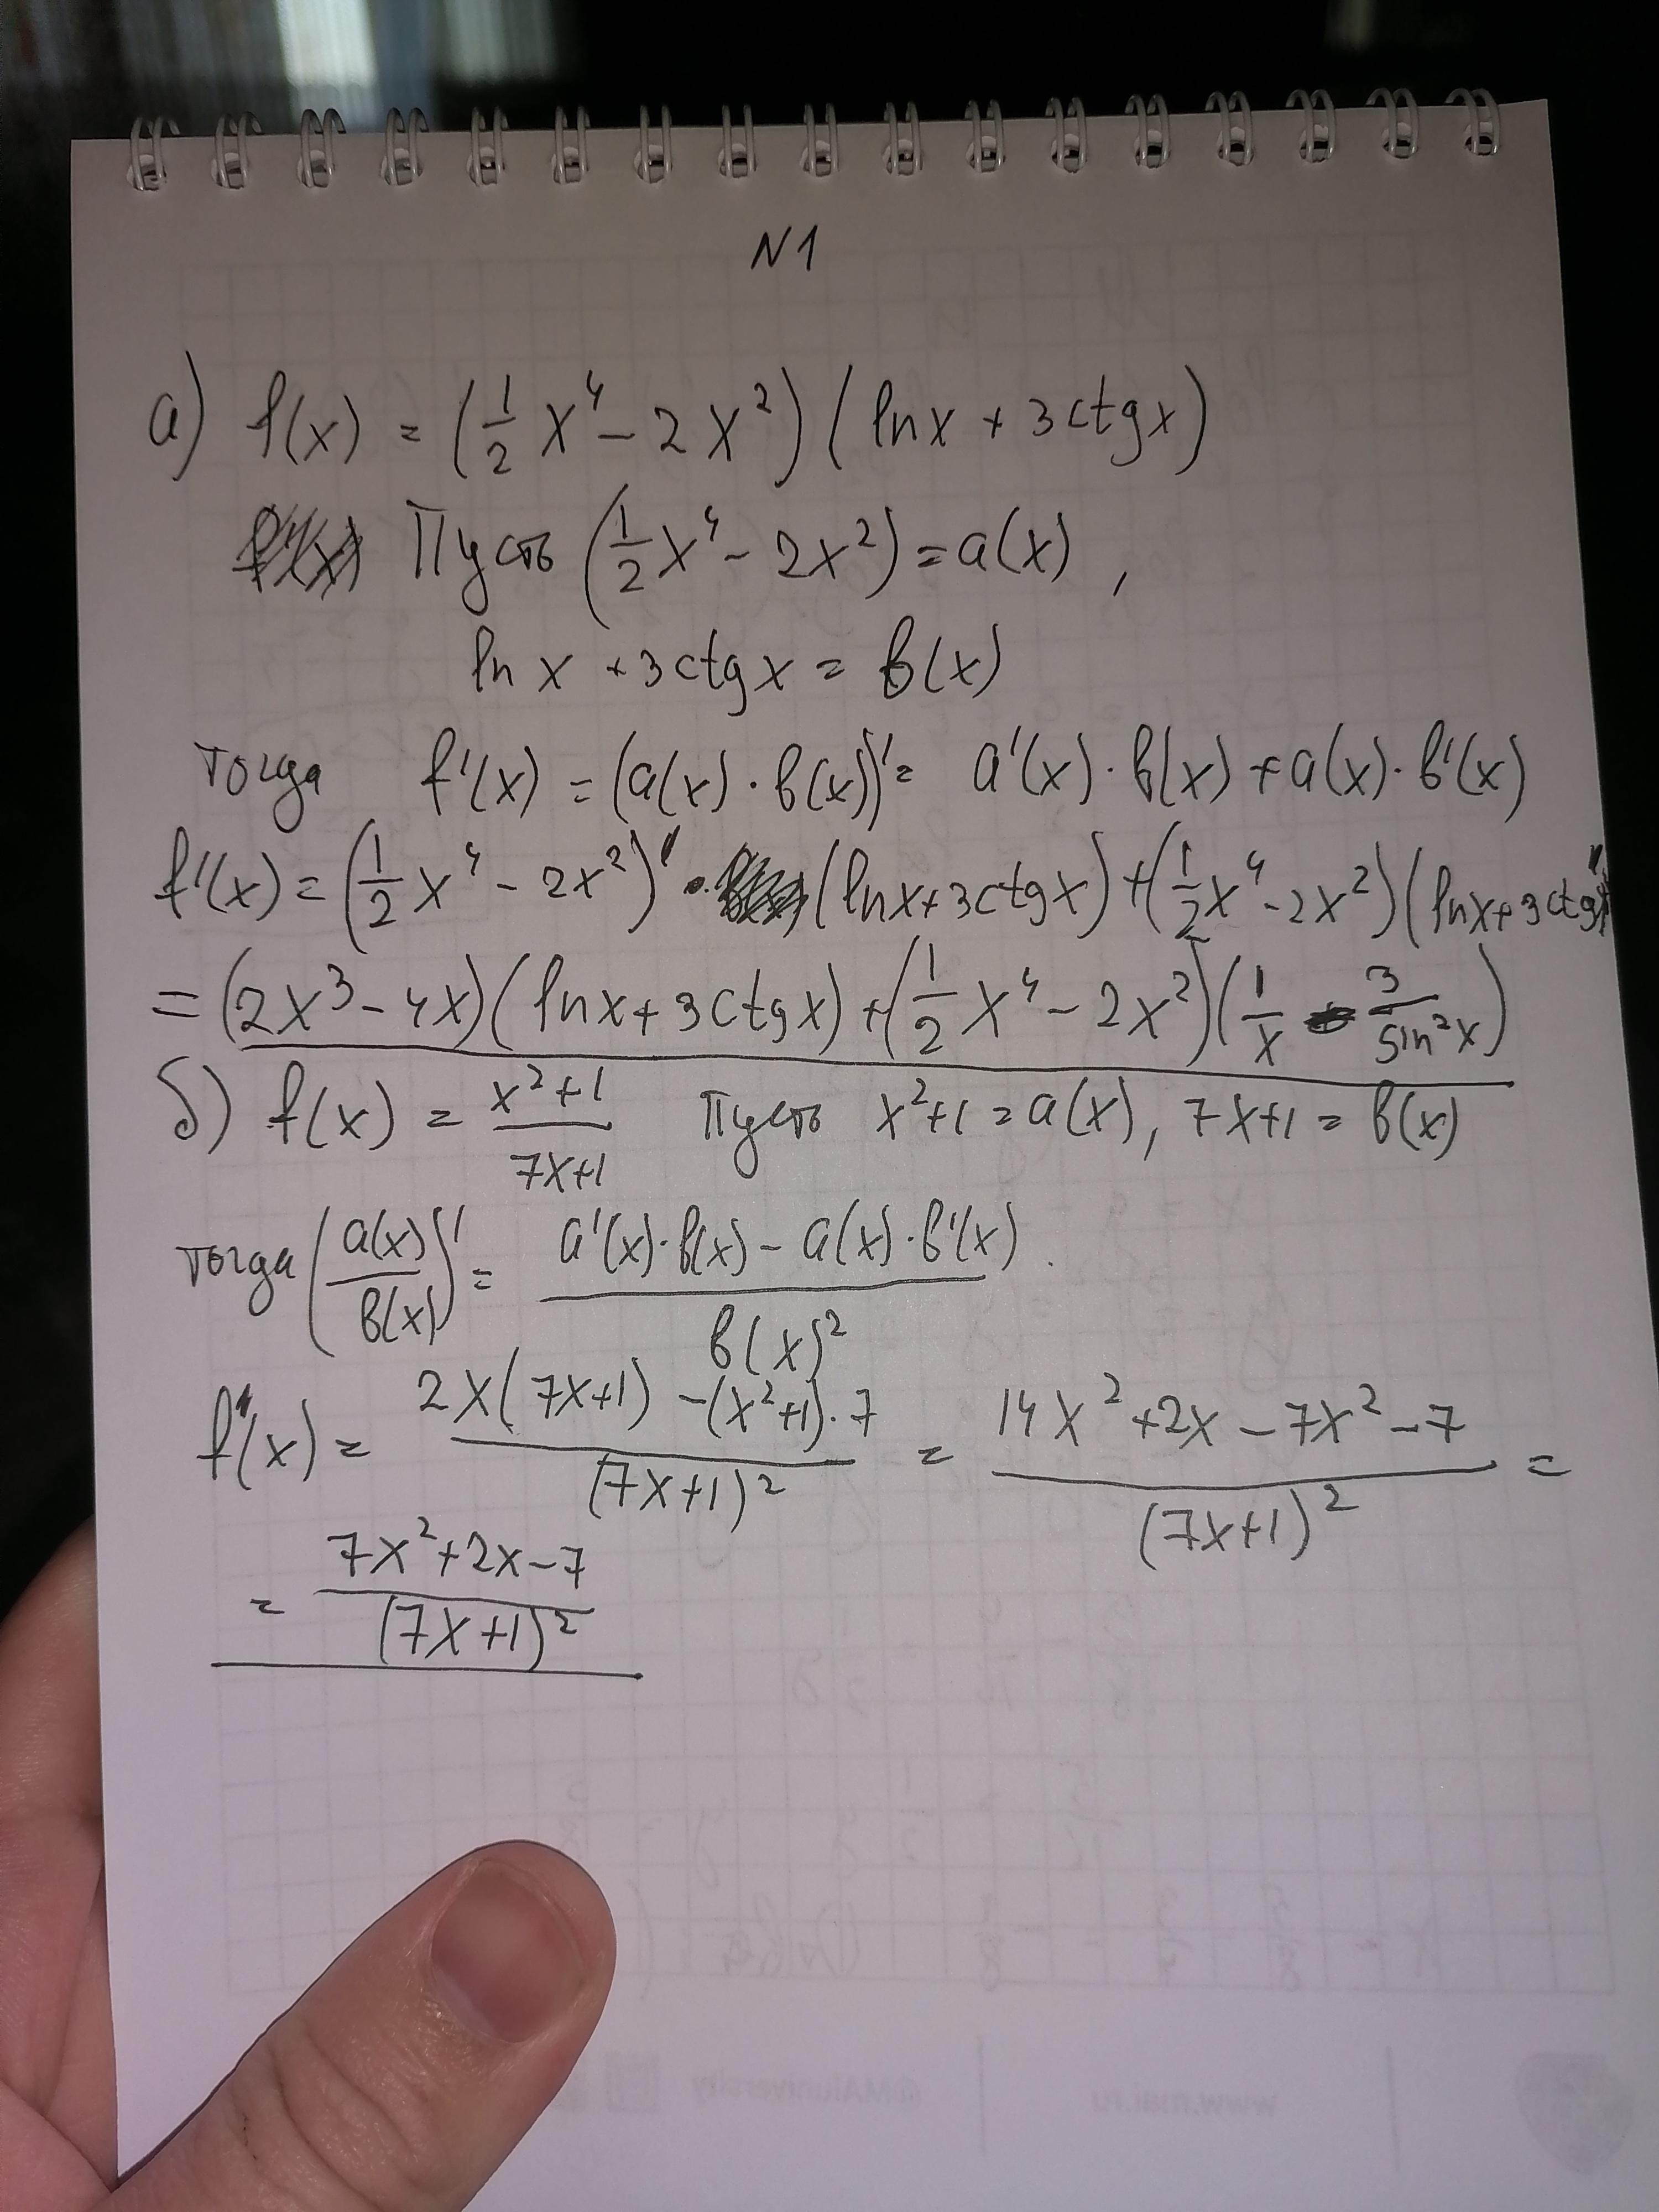 N1
а) f(x) = (1/2 x⁴ - 2x²)(ln x + 3ctgx)
Пусть (1/2 x⁴ - 2x²) = a(x),
ln x + 3ctgx = b(x)
тогда f'(x) = (a(x)·b(x))' = a'(x)·b(x) + a(x)·b'(x)
f'(x) = (1/2 x⁴ - 2x²)' · (lnx+3ctgx) + (1/2 x⁴ - 2x²)(lnx+3ctgx)'
= (2x³ - 4x)(lnx + 3ctgx) + (1/2 x⁴ - 2x²)(1/x - 3/sin²x)
б) f(x) = (x²+1)/(7x+1) Пусть x²+1 = a(x), 7x+1 = b(x)
тогда (a(x)/b(x))' = (a'(x)·b(x) - a(x)·b'(x))/b(x)².
f'(x) = (2x(7x+1) - (x²+1)·7)/(7x+1)² = (14x²+2x-7x²-7)/(7x+1)² =
= (7x²+2x-7)/(7x+1)²
www.mai.ru
@MAIuniversity